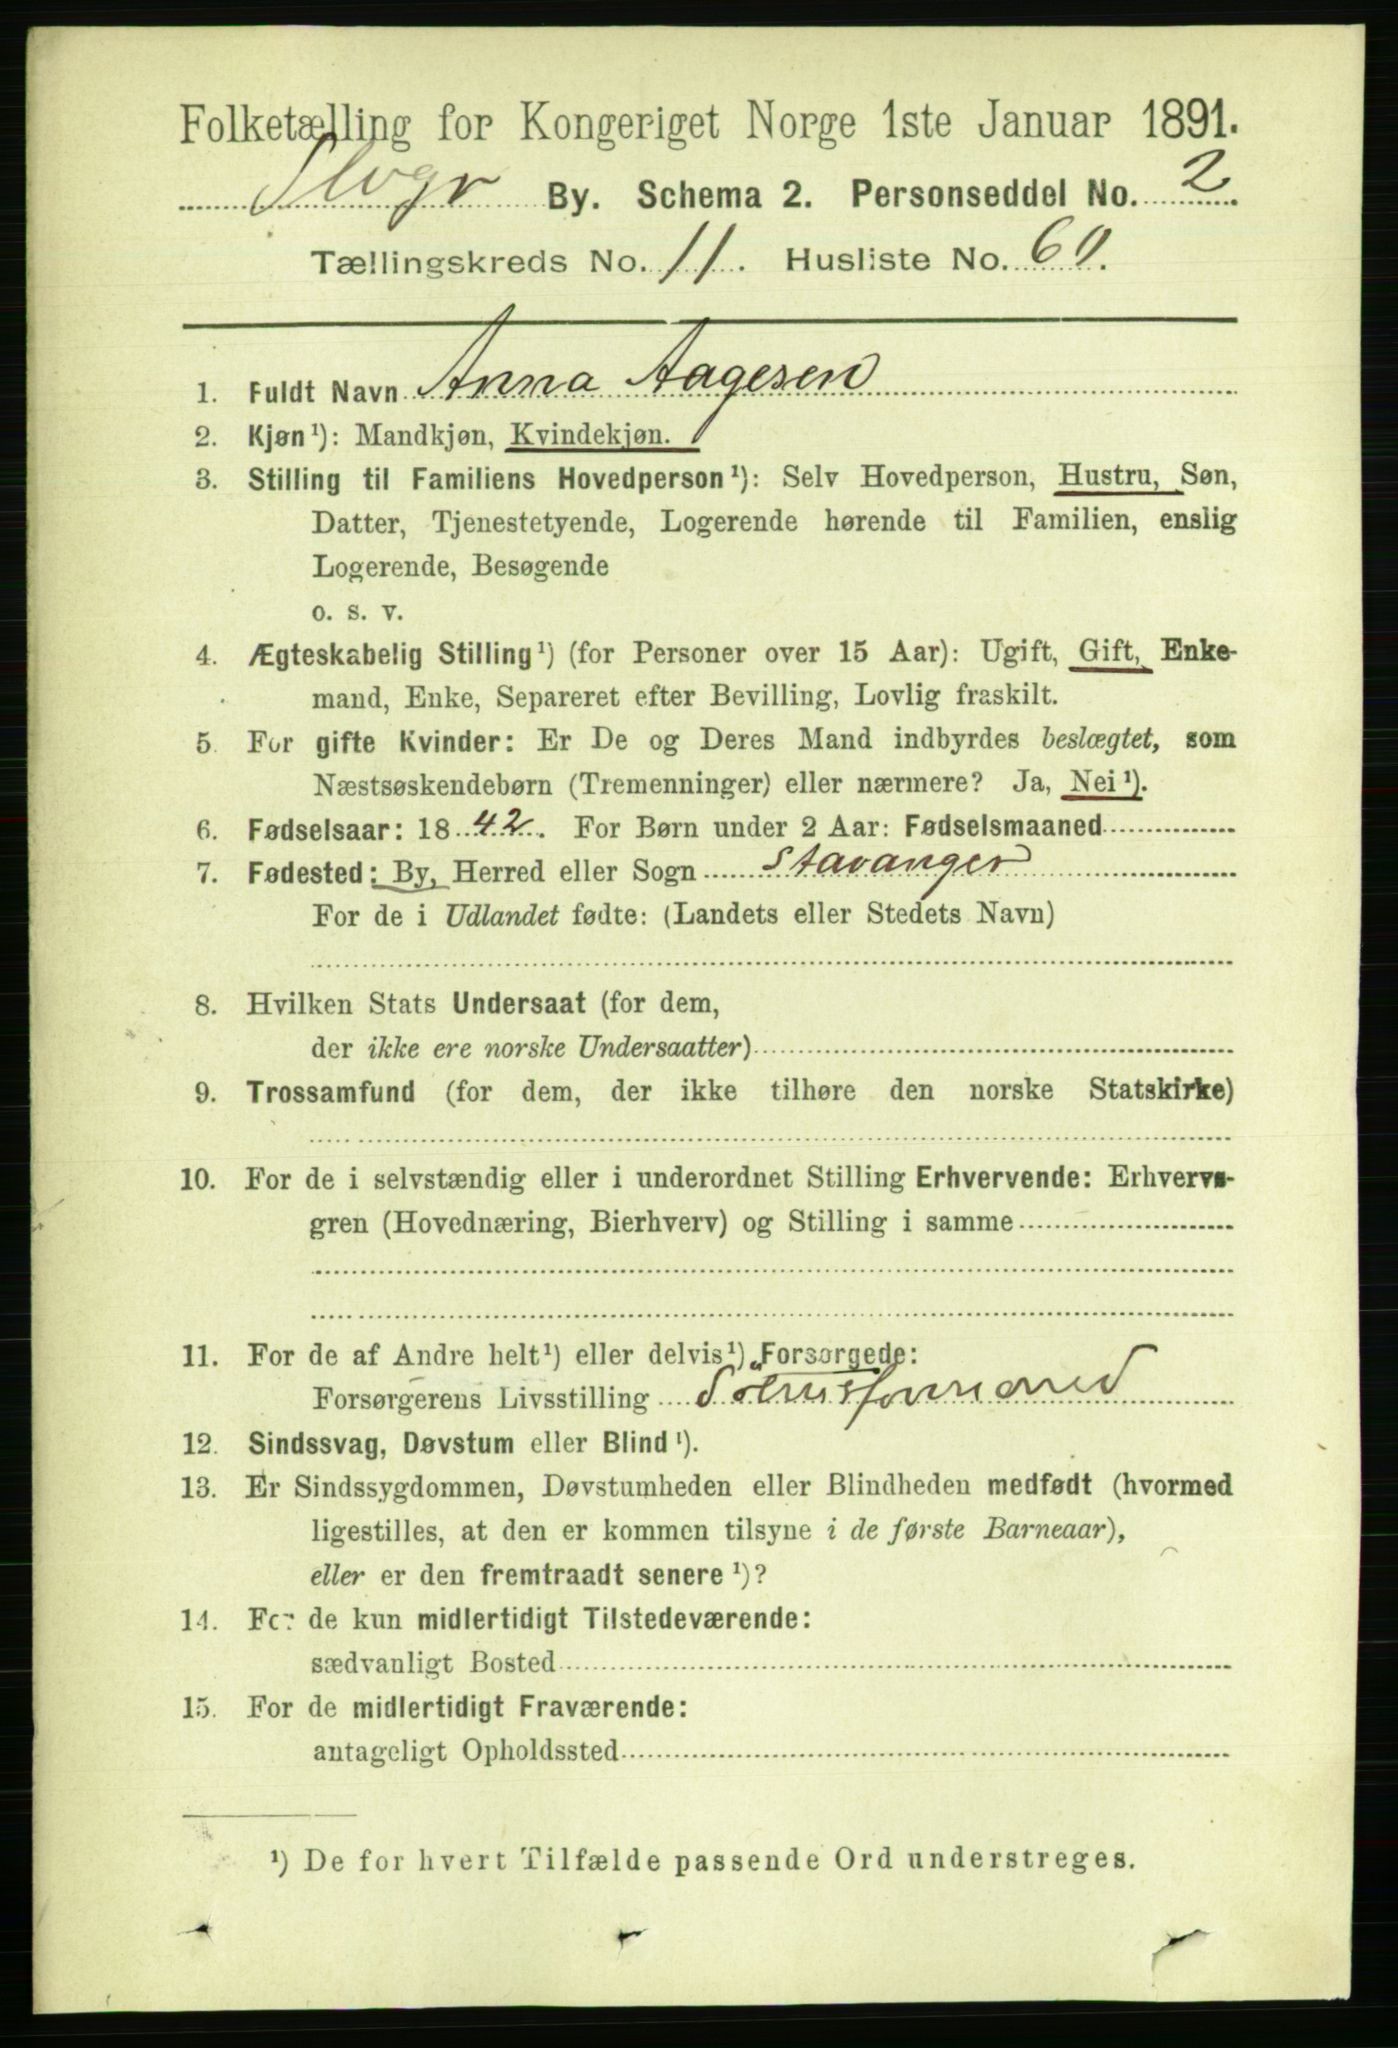 Folketælling for Kongeriget Norge 1ste Januar 1891.
Stvgr By. Schema 2. Personseddel No. 2
Tællingskreds No. 11. Husliste No. 60.
1. Fuldt Navn Anna Aagesen
2. Kjøn¹): Mandkjøn, Kvindekjøn.
3. Stilling til Familiens Hovedperson¹): Selv Hovedperson, Hustru, Søn,
Datter, Tjenestetyende, Logerende hørende til Familien, enslig
Logerende, Besøgende
o. s. v.
4. Ægteskabelig Stilling¹) (for Personer over 15 Aar): Ugift, Gift, Enke-
mand, Enke, Separeret efter Bevilling, Lovlig fraskilt.
5. For gifte Kvinder: Er De og Deres Mand indbyrdes beslægtet, som
Næstsøskendebørn (Tremenninger) eller nærmere? Ja, Nei¹).
6. Fødselsaar: 1842. For Børn under 2 Aar: Fødselsmaaned
7. Fødested: By, Herred eller Sogn Stavanger
For de i Udlandet fødte: (Landets eller Stedets Navn)
8. Hvilken Stats Undersaat (for dem,
der ikke ere norske Undersaatter)
9. Trossamfund (for dem, der ikke tilhøre den norske Statskirke)
10. For de i selvstændig eller i underordnet Stilling Erhvervende: Erhvervs-
gren (Hovednæring, Bierhverv) og Stilling i samme
11. For de af Andre helt¹) eller delvis¹) Forsørgede:
Forsørgerens Livsstilling
12. Sindssvag, Døvstum eller Blind¹).
13. Er Sindssygdommen, Døvstumheden eller Blindheden medfødt (hvormed
ligestilles, at den er kommen tilsyne i de første Barneaar),
eller er den fremtraadt senere¹)?
14. For de kun midlertidigt Tilstedeværende:
sædvanligt Bosted
15. For de midlertidigt Fraværende:
antageligt Opholdssted
¹) De for hvert Tilfælde passende Ord understreges.